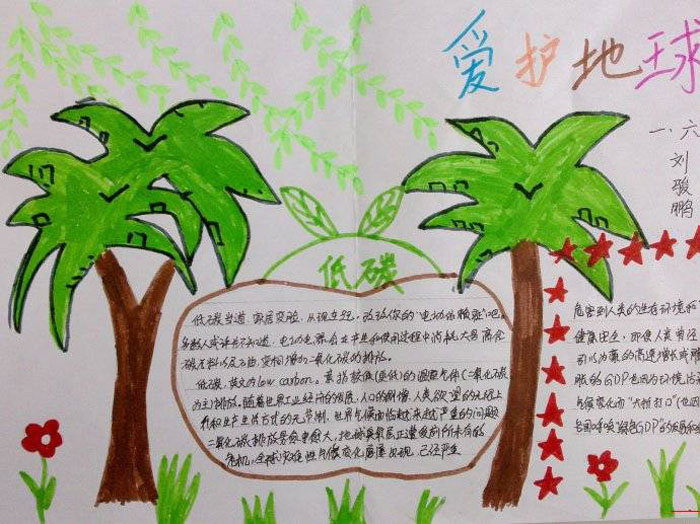 爱护地球
一.六
刘
骏
鹏
低碳
低碳当道 家居交融，从现在起，改改你的“电力依赖症”吧。
多数人或许并不知道，电力电器会在生产和使用过程中消耗大量高化
碳化石以及石油，变相增加二氧化碳的排放。
低碳，英文为low carbon。意指较低(更低)的温室气体(二氧化碳
为主)排放。随着世界工业经济的发展，人口的剧增，人类欲望的无限上
升和生产生活方式的无节制，世界气候面临越来越严重的问题，
二氧化碳排放量愈来愈大，地球臭氧层正遭受前所未有的
危机，全球灾难性气候变化屡屡出现，已经严重
危害到人类的生存环境和
健康安全，即使人类曾经
引以为豪的高速增长或膨
胀的GDP也因为环境污
气候变化而“大打折扣”(也因
各国呼唤“绿色GDP”的发展